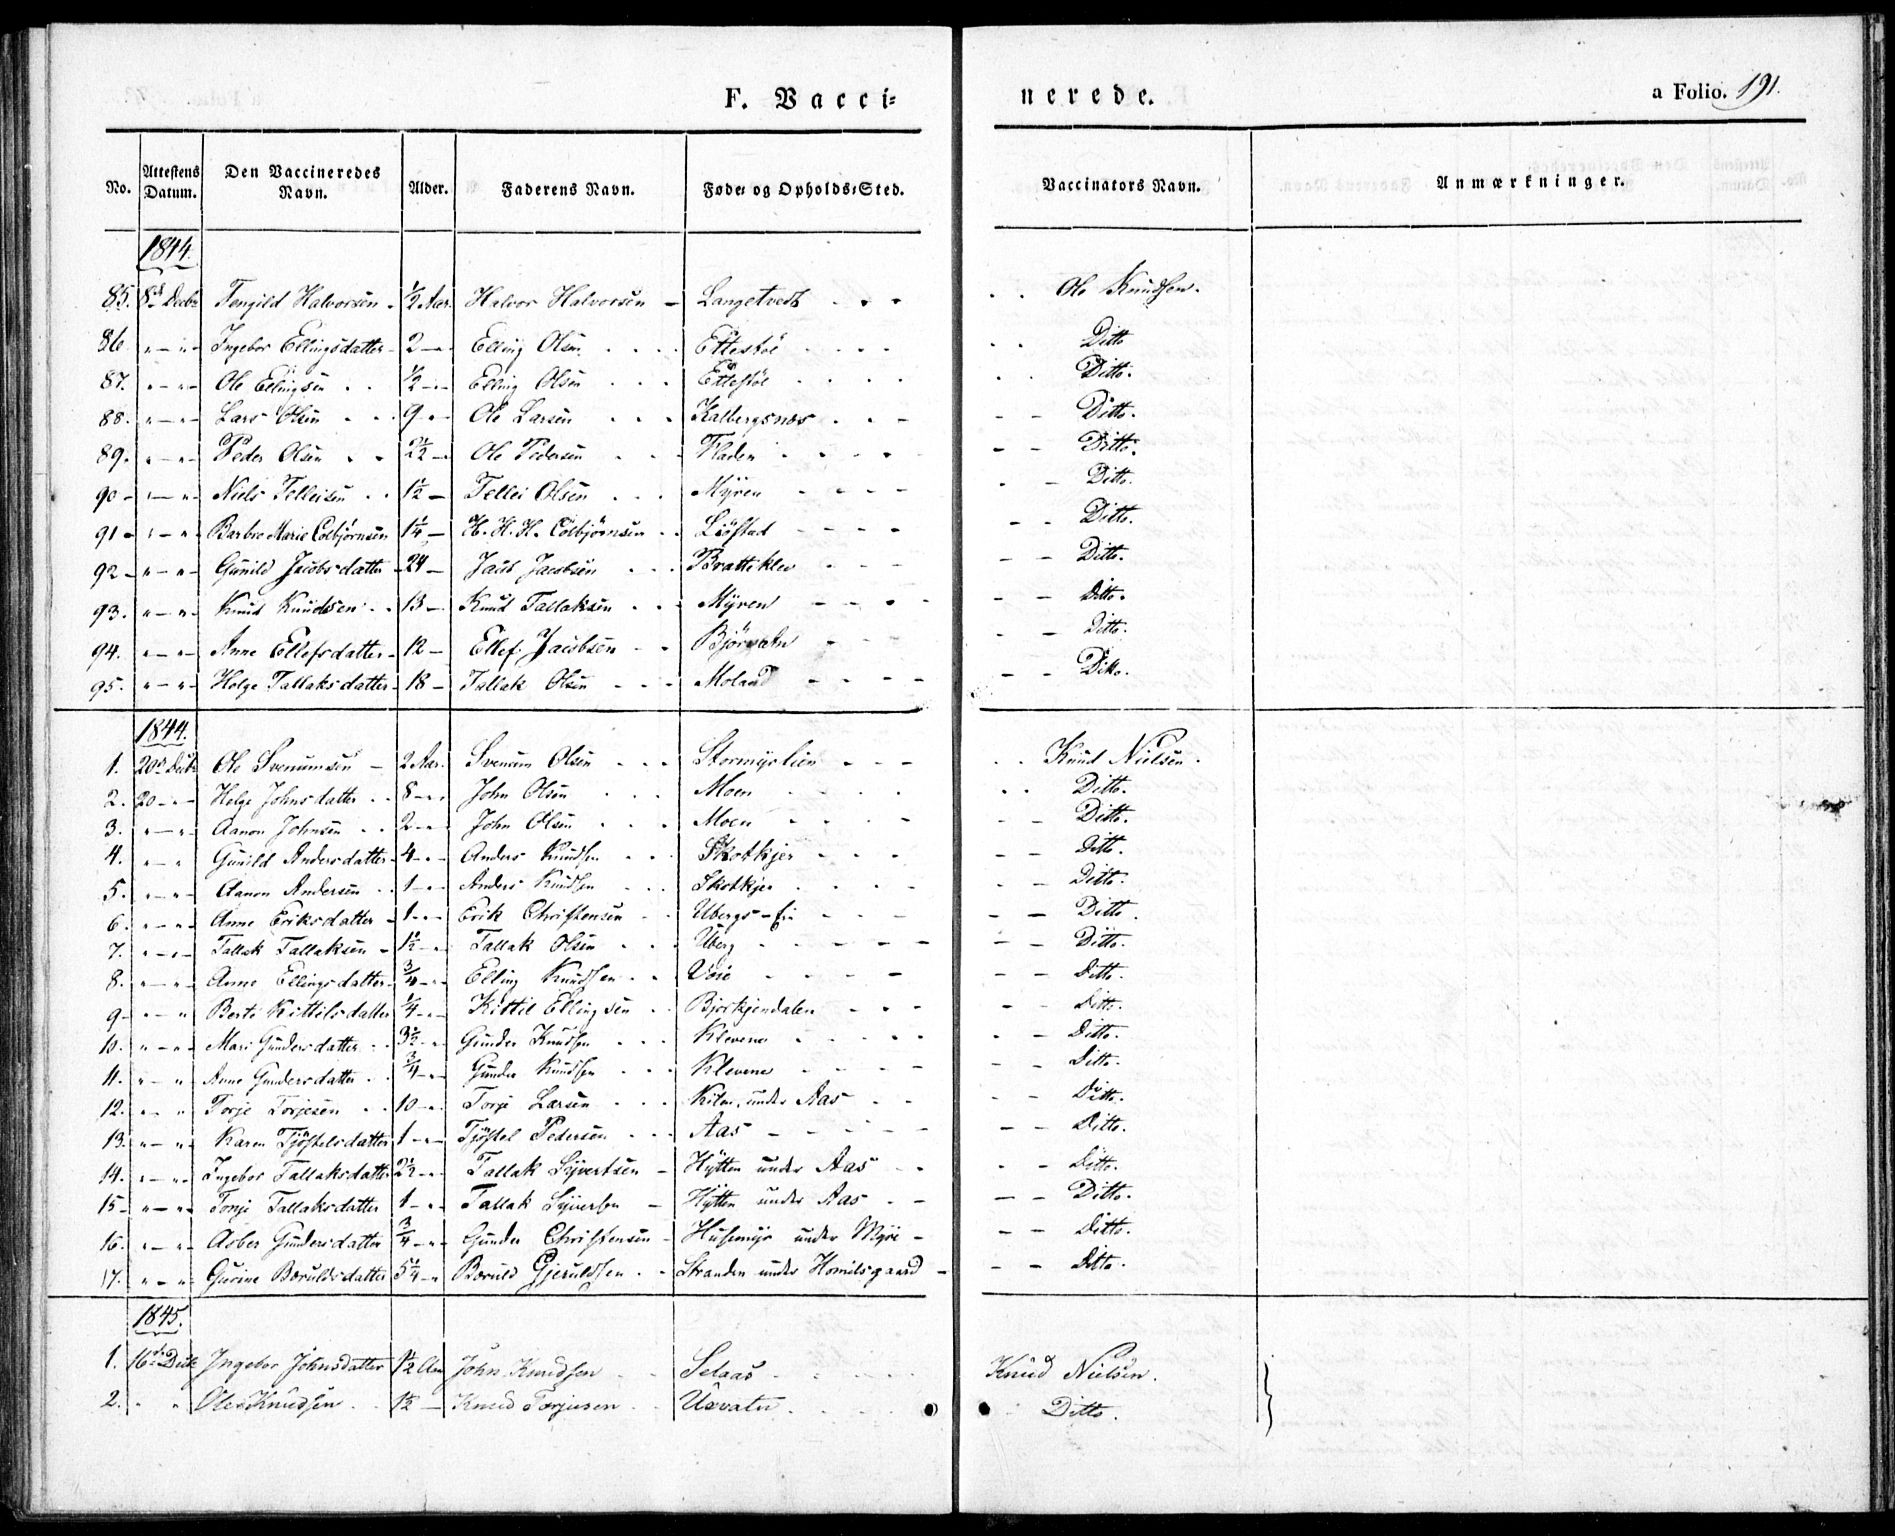 F. Vacci=
nerede.
a Folio. 191.
No. Attestens Datum. Den Vaccineredes Navn. Alder. Faderens Navn. Føde- og Opholds-Sted. Vaccinators Navn. Anmærkninger.
1844.
85. 8de Decbr Tengild Halvorsen - ½ Aar. Halvor Halvorsen - Langetvedt - - - . . Ole Knudsen.
86. " — " Ingebor Ellingsdatter - 2 — " Elling Olsen . . . Ettestøl . . . . . . Ditto
87. " — " Ole Ellingsen . . ½ — " Elling Olsen . . . Ettestøl . . . . . . Ditto.
88. " — " Lars Olsen . . 9 — " Ole Larsen . . . Kalbergsnes . . - - - Ditto.
89. " — " Peder Olsen . . 2½ — Ole Pedersen . . . Fladen . . . . - - Ditto.
90 - " — " Niels Telleisen . . 1½ — Tellei Olsen . . . Myren - - - - . - Ditto.
91 - " — " Barbro Marie Colbjørnsen 1¼ — H. H. H. Colbjørnsen . . Liøstad - - - - - - Ditto.
92 - " — " Gunild Jacobsdatter - 24 — Jacob Jacobsen . . . Bratteklev - - - - - Ditto.
93. " — " Knud Knudsen . . 13 — Knud Tallaksen . . . Myren - - - - - - Ditto.
94. " — " Anne Ellefsdatter - 12 — Ellef Jacobsen - - Bjørvatn - - - - Ditto.
95. " — " Helge Tallaksdatter - 18 — Tallak Olsen - - - Moland - - - - - - Ditto.
1844.
1. 20de Decbr Ole Svenumsen — 2 Aar. Svenum Olsen . . . Stormyrlien - - - . . Knud Nielsen.
2. 20 — " Helge Johnsdatter . . 8 — " John Olsen . . . Moen . . . . . . Ditto.
3. " — " Aanon Johnsen . . 2 — " John Olsen . . . Moen . . . - - - Ditto.
4. " — " Gunild Andersdatter - 4 — " Anders Knudsen . . . Skotkjer . . . - - Ditto.
5. " — " Aanon Andersen . . 1 — " Anders Knudsen . . . Skotkjer . . . . - - Ditto.
6. " — " Anne Eriksdatter - 1 — " Erik Christensen . . Ubergs-Eie - - - - - Ditto.
7. " — " Tallak Tallaksen - 1½ — " Tallak Olsen . . . Uberg - - - - - - - Ditto.
8. " — " Anne Ellingsdatter - ¾ — " Elling Knudsen . . Voie - - - - - - Ditto.
9 - " — " Berte Kittilsdatter ¼ — " Kittil Ellingsen . . Bjørkjendalen - - - - - Ditto.
10. " — " Mari Gundersdatter . . 3½ — " Gunder Knudsen . . . Klevene - . . . . . - Ditto.
11. " — " Anne Gundersdatter . . ¾ — " Gunder Knudsen . . . Klevene - - - - - - Ditto.
12. " — " Torje Torjesen . . 10 — " Torje Larsen . . . under Aas - - - - Ditto.
13. " — " Karen Tjøstelsdatter 1 — " Tjøstel Pedersen . . . Aas - - - - - - - Ditto.
14. " — " Ingebor Tallaksdatter 2½ — " Tallak Syvertsen - Hytten under Aas . . - - Ditto.
15 - " — " Tonje Tallaksdatter 1 — " Tallak Syversen - Hytten under Aas . - — - Ditto.
16. " — " Asber Gundersdatter ¾ — " Gunder Christensen - Husemyr under Myre - - - Ditto.
17. " — " Gurine Boruldsdatter 5¼ — " Boruld Gjeruldsen . . Stranden under Homilsgaard - - - Ditto.
1845.
1. 16de Decbr Ingebor Johnsdatter 1½ Aar John Knudsen . . Selaas - . . . . Knud Nielsen.
2. " " Ole Knudsen . . 1½ — Knud Torjusen . . Uvatn . . . . . Ditto.